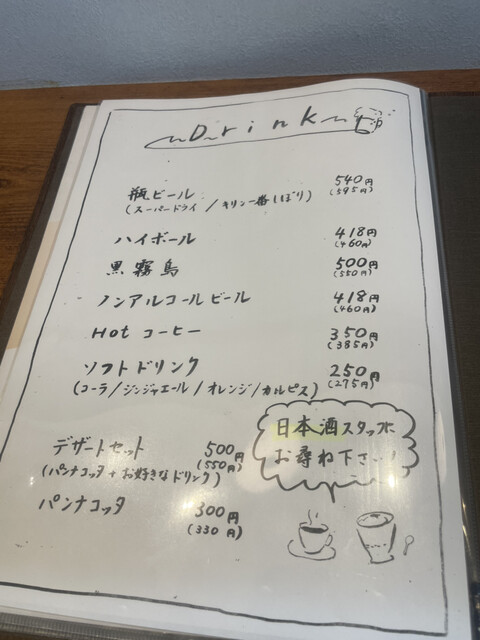 ~Drink~
瓶ビール 540円
(スーパードライ/キリン一番しぼり) (595円)
ハイボール 418円
(460円)
黒霧島 500円
(550円)
ノンアルコールビール 418円
(460円)
Hot コーヒー 350円
(385円)
ソフトドリンク 250円
(コーラ/ジンジャエール/オレンジ/カルピス) (275円)
日本酒スタッフに
お尋ね下さい!
デザートセット 500円
(パンナコッタ+お好きなドリンク) (550円)
パンナコッタ 300円
(330円)